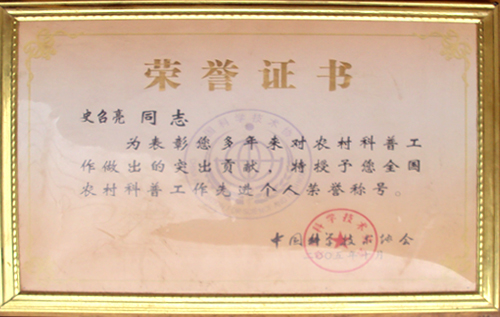 荣誉证书
史召亮 同志
为表彰您多年来对农村科普工
作做出的突出贡献，特授予您全国
农村科普工作先进个人荣誉称号。
科学技术
中国科学技术协会
二〇〇五年十月